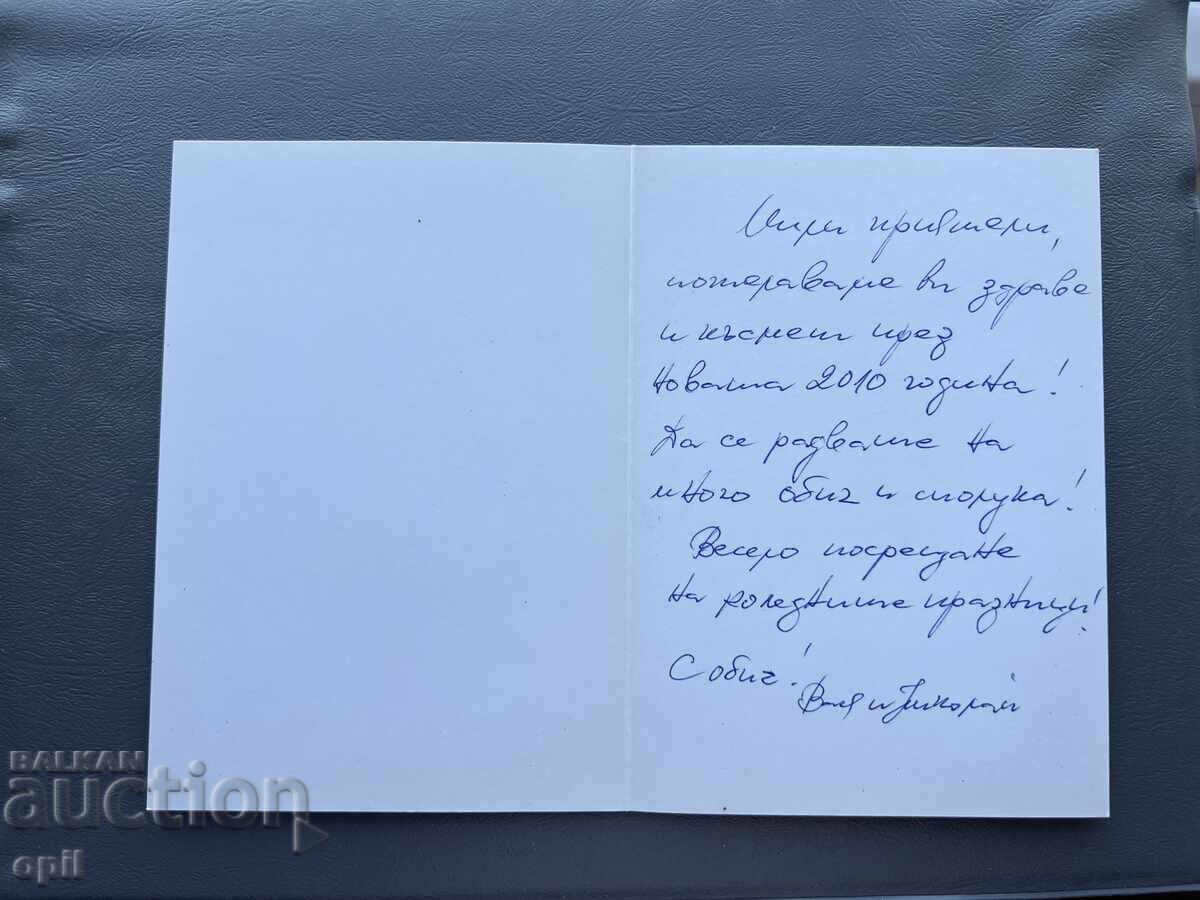 Мили приятели,
пожелаваме ви здраве
и късмет през
Новата 2010 година!
Да се радвате на
много обич и сполука!
Весело посрещане
на коледните празници!
С обич!
Валя и Николай
BALKAN
auction
opil